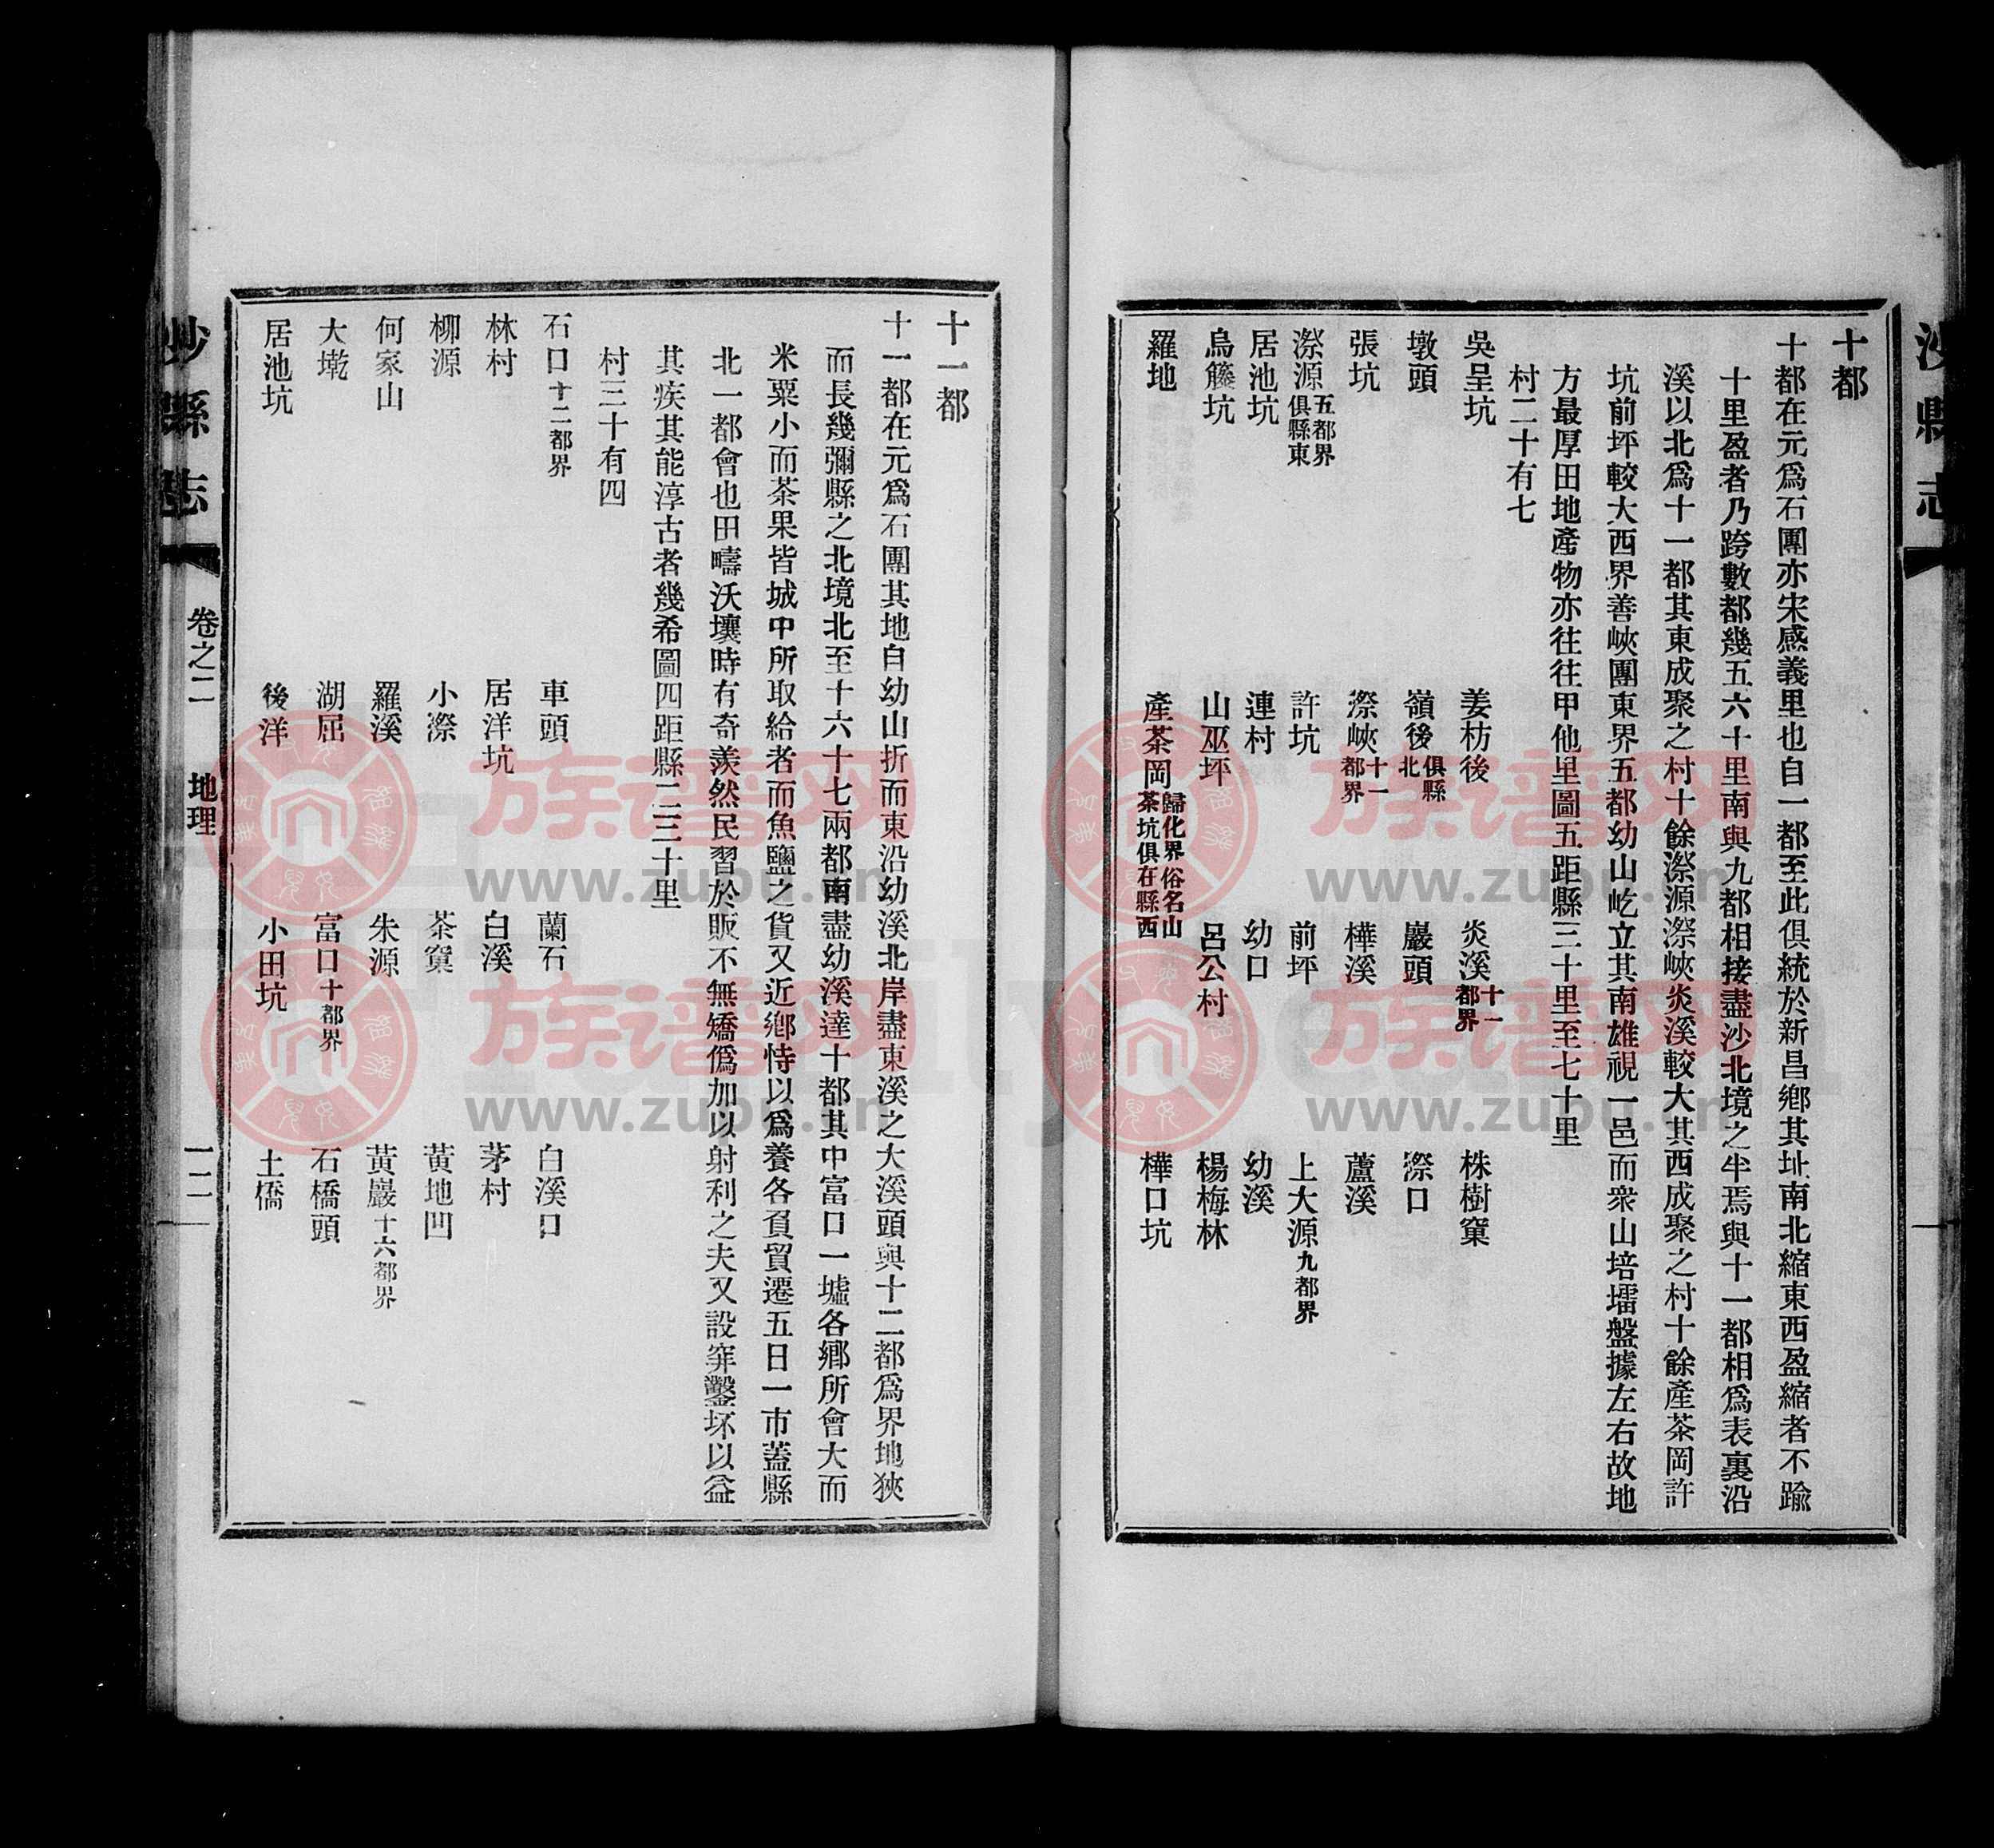 沙縣志
十都
十都在元爲石團亦宋感義里也自一都至此俱統於新昌鄉其址南北縮東西盈縮者不踰
十里盈者乃跨數都幾五六十里南與九都相接盡沙北境之半焉與十一都相爲表裏沿
溪以北爲十一都其東成聚之村十餘漈源漈峽炎溪較大其西成聚之村十餘產茶岡許
坑前坪較大西界善峽團東界五都幼山屹立其南雄視一邑而衆山培塿盤據左右故地
方最厚田地產物亦往往甲他里圖五距縣三十里至七十里
村二十有七
吳呈坑 姜枋後 炎溪十一都界 株樹窠
墩頭 嶺後俱縣北 巖頭 漈口
張坑 漈峽十一都界 樺溪 蘆溪
漈源五都界俱縣東 許坑 前坪 上大源九都界
居池坑 連村 幼口 幼溪
烏籐坑 山巫坪 呂公村 楊梅林
羅地 產茶岡歸化界俗名山茶坑俱在縣西 樺口坑
十一都
十一都在元爲石團其地自幼山折而東沿幼溪北岸盡東溪之大溪頭與十二都爲界地狹
而長幾彌縣之北境北至十六十七兩都南盡幼溪達十都其中富口一墟各鄉所會大而
米粟小而茶果皆城中所取給者而魚鹽之貨又近鄉恃以爲養各負貿遷五日一市蓋縣
北一都會也田疇沃壤時有奇羨然民習於販不無矯僞加以射利之夫又設穽鑿坏以益
其疾其能淳古者幾希圖四距縣二三十里
村三十有四
石口十二都界 車頭 蘭石 白溪口
林村 居洋坑 白溪 茅村
柳源 小漈 茶窠 黃地凹
何家山 羅溪 朱源 黃巖十六都界
大墘 湖屈 富口十都界 石橋頭
居池坑 後洋 小田坑 土僑
沙縣志 卷之二 地理 一一
族谱网
www.zupu.cn
族谱网
www.zupu.cn
族谱网
www.zupu.cn
族谱网
www.zupu.cn